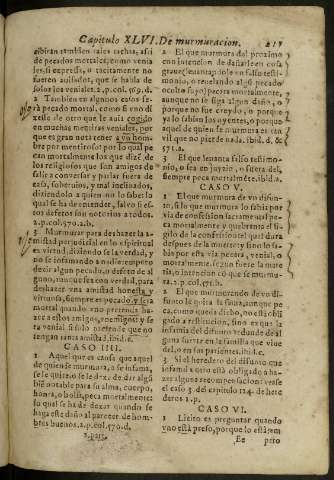 Capitulo XLVI. De murmuracion. 217
cibiran tambien tales tachas, assi
de pecados mortales, como venia
les, si expressa, o tacitamente no
fueren auisados, que se habla de
solos los veniales. 2. p. col. 569. d.
2 Tambien en algunos casos se-
rà pecado mortal, como si vno di
xesse de otro que le auia cogido
en muchas mentiras veniales, por
que es gran nota tener a vn hom-
bre por mentiroso: por lo qual pe
can mortalmente los que dizē de
los religiosos que son amigos de
salir a conuersar y parlar fuera de
casa, soberuios, y mal inclinados,
diziendolo a quien no lo sabe: lo
qual se ha de entender, saluo si es-
tos defetos son notorios a todos.
2. p. col. 570. a. b.
3 Murmurar para deshazer la a-
mistad perjudicial en lo espiritual
es virtud, diziendo se la verdad, y
no se infamando a nadie: empero
dezir algun pecado, o defeto de al
guno, aunque sea con verdad, para
deshazer vna amistad honesta y
virtuosa, siempre es pecado, y será
mortal quando vno pretenda ha-
zer a estos amigos, enemigos: y se
ra venial si solo pretende que no
tengan tanta amistad. ibid. c.
CASO IIII.
1 Aquel que es causa que aquel
de quien se murmura, o se infama,
se le quite, o se le dexe de dar algū
biē notable para su alma, cuerpo,
honra, o bolsa, peca mortalmente:
lo qual se ha de dexar quando se
haga este daño al parecer de hom-
bres buenos. 2. p. col. 570. d.
2. part.
2 El que murmura del proximo
con intencion de dañarle en cosa
graue (leuantandole vn falso testi-
monio, o reuelando algun pecado
oculto suyo) pecara mortalmente,
aunque no se siga algun daño, o
porque no fue creydo, o porque
ya lo sabian los oyentes, o porque
aquel de quien se murmura es tan
vil que no pierde nada. ibid. d. &
571. a.
3 El que leuanta falso testimo-
nio, o sea en juyzio, o fuera del,
siempre peca mortalmēte. ibid. a.
CASO V.
1 El que murmura de vn difun-
to, si lo que murmura lo sabia por
via de confession sacramental pe-
ca mortalmente y quebranta el si-
gilo de la confession el qual dura
despues de la muerte: y sino lo sa-
bia por esta via pecara, venial, o
mortalmente, segun fuere la mate
ria, o intencion cō que se murmu-
ra. 2. p. col. 571. b.
2 El que murmurando de vn di
funto le quita la fama, aunque pe-
ca, como queda dicho, no està obli
gado a restitucion, sino es que la
infamia del difunto redunde de al
guna suerte en la familia que viue
del, o en sus parientes. ibid. c.
3 Si el heredero del difunto que
infamò a otro està obligado a ha-
zer alguna recompensacion: vease
el caso 3. del capitulo 124. de here
deros 2. p.
CASO VI.
1 Licito es preguntar quando
vno està preso, porque lo està: em
Ee pero